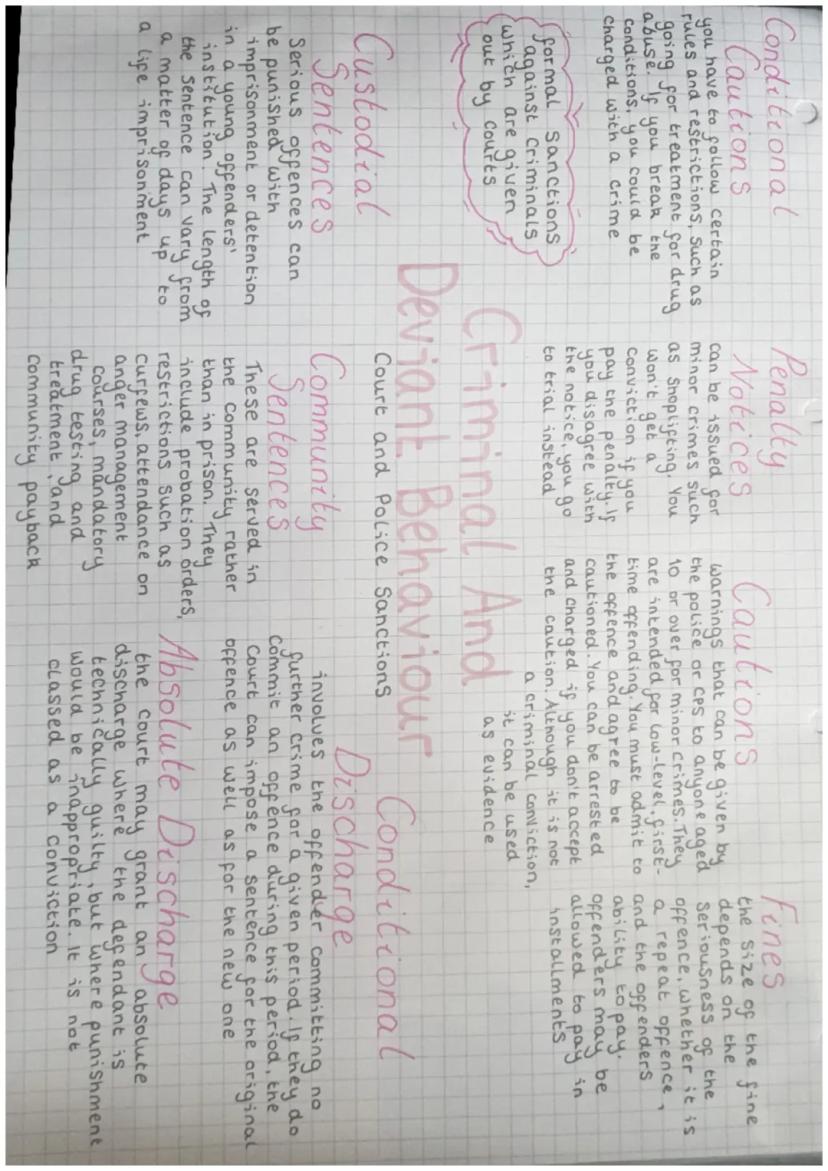 Conditional
Cautions
you have to follow certain
rules and restrictions, such as
going for treatment for drug
abuse. If you break the
conditions, you could be
charged with a crime
Penalty
Notices
can be issued for
minor crimes such
as shoplifting. You
won't get a
conviction if you
pay the penalty. If
you disagree with
the notice, you go
to trial instead
Cautions
warnings that can be given by
the police or CPS to anyone aged
10 or over for minor crimes. They
are intended for low-level, first-
time offending. You must admit to
the offence and agree to be
cautioned. You can be arrested
and charged if you don't accept
the caution. Although it is not
a criminal conviction,
it can be used
as evidence
Fines
the size of the fine
depends on the
seriousness of the
offence, whether it is
a repeat offence,
and the offenders
ability to pay.
offenders may be
allowed to pay in
installments
formal sanctions
against criminals
which are given
out by courts
Criminal And
Deviant Behaviour
Court and Police Sanctions
Custodial
Sentences
Serious offences can
be punished with
imprisonment or detention
in a young offenders'
institution. The length of
the sentence can vary from
a matter of days up to
a life imprisonment
Community
Sentences
These are served in
the community rather
than in prison. They
include probation orders,
restrictions such as
curfews, attendance on
anger management
courses, mandatory
drug testing and
treatment, and
community payback
Conditional
Discharge
involves the offender committing no
further crime for a given period. If they do
commit an offence during this period, the
Court can impose a sentence for the original
offence as well as for the new one
Absolute Discharge
the court may grant an absolute
discharge where the defendant is
technically guilty, but where punishment
would be inappropriate. It is not
classed as a conviction